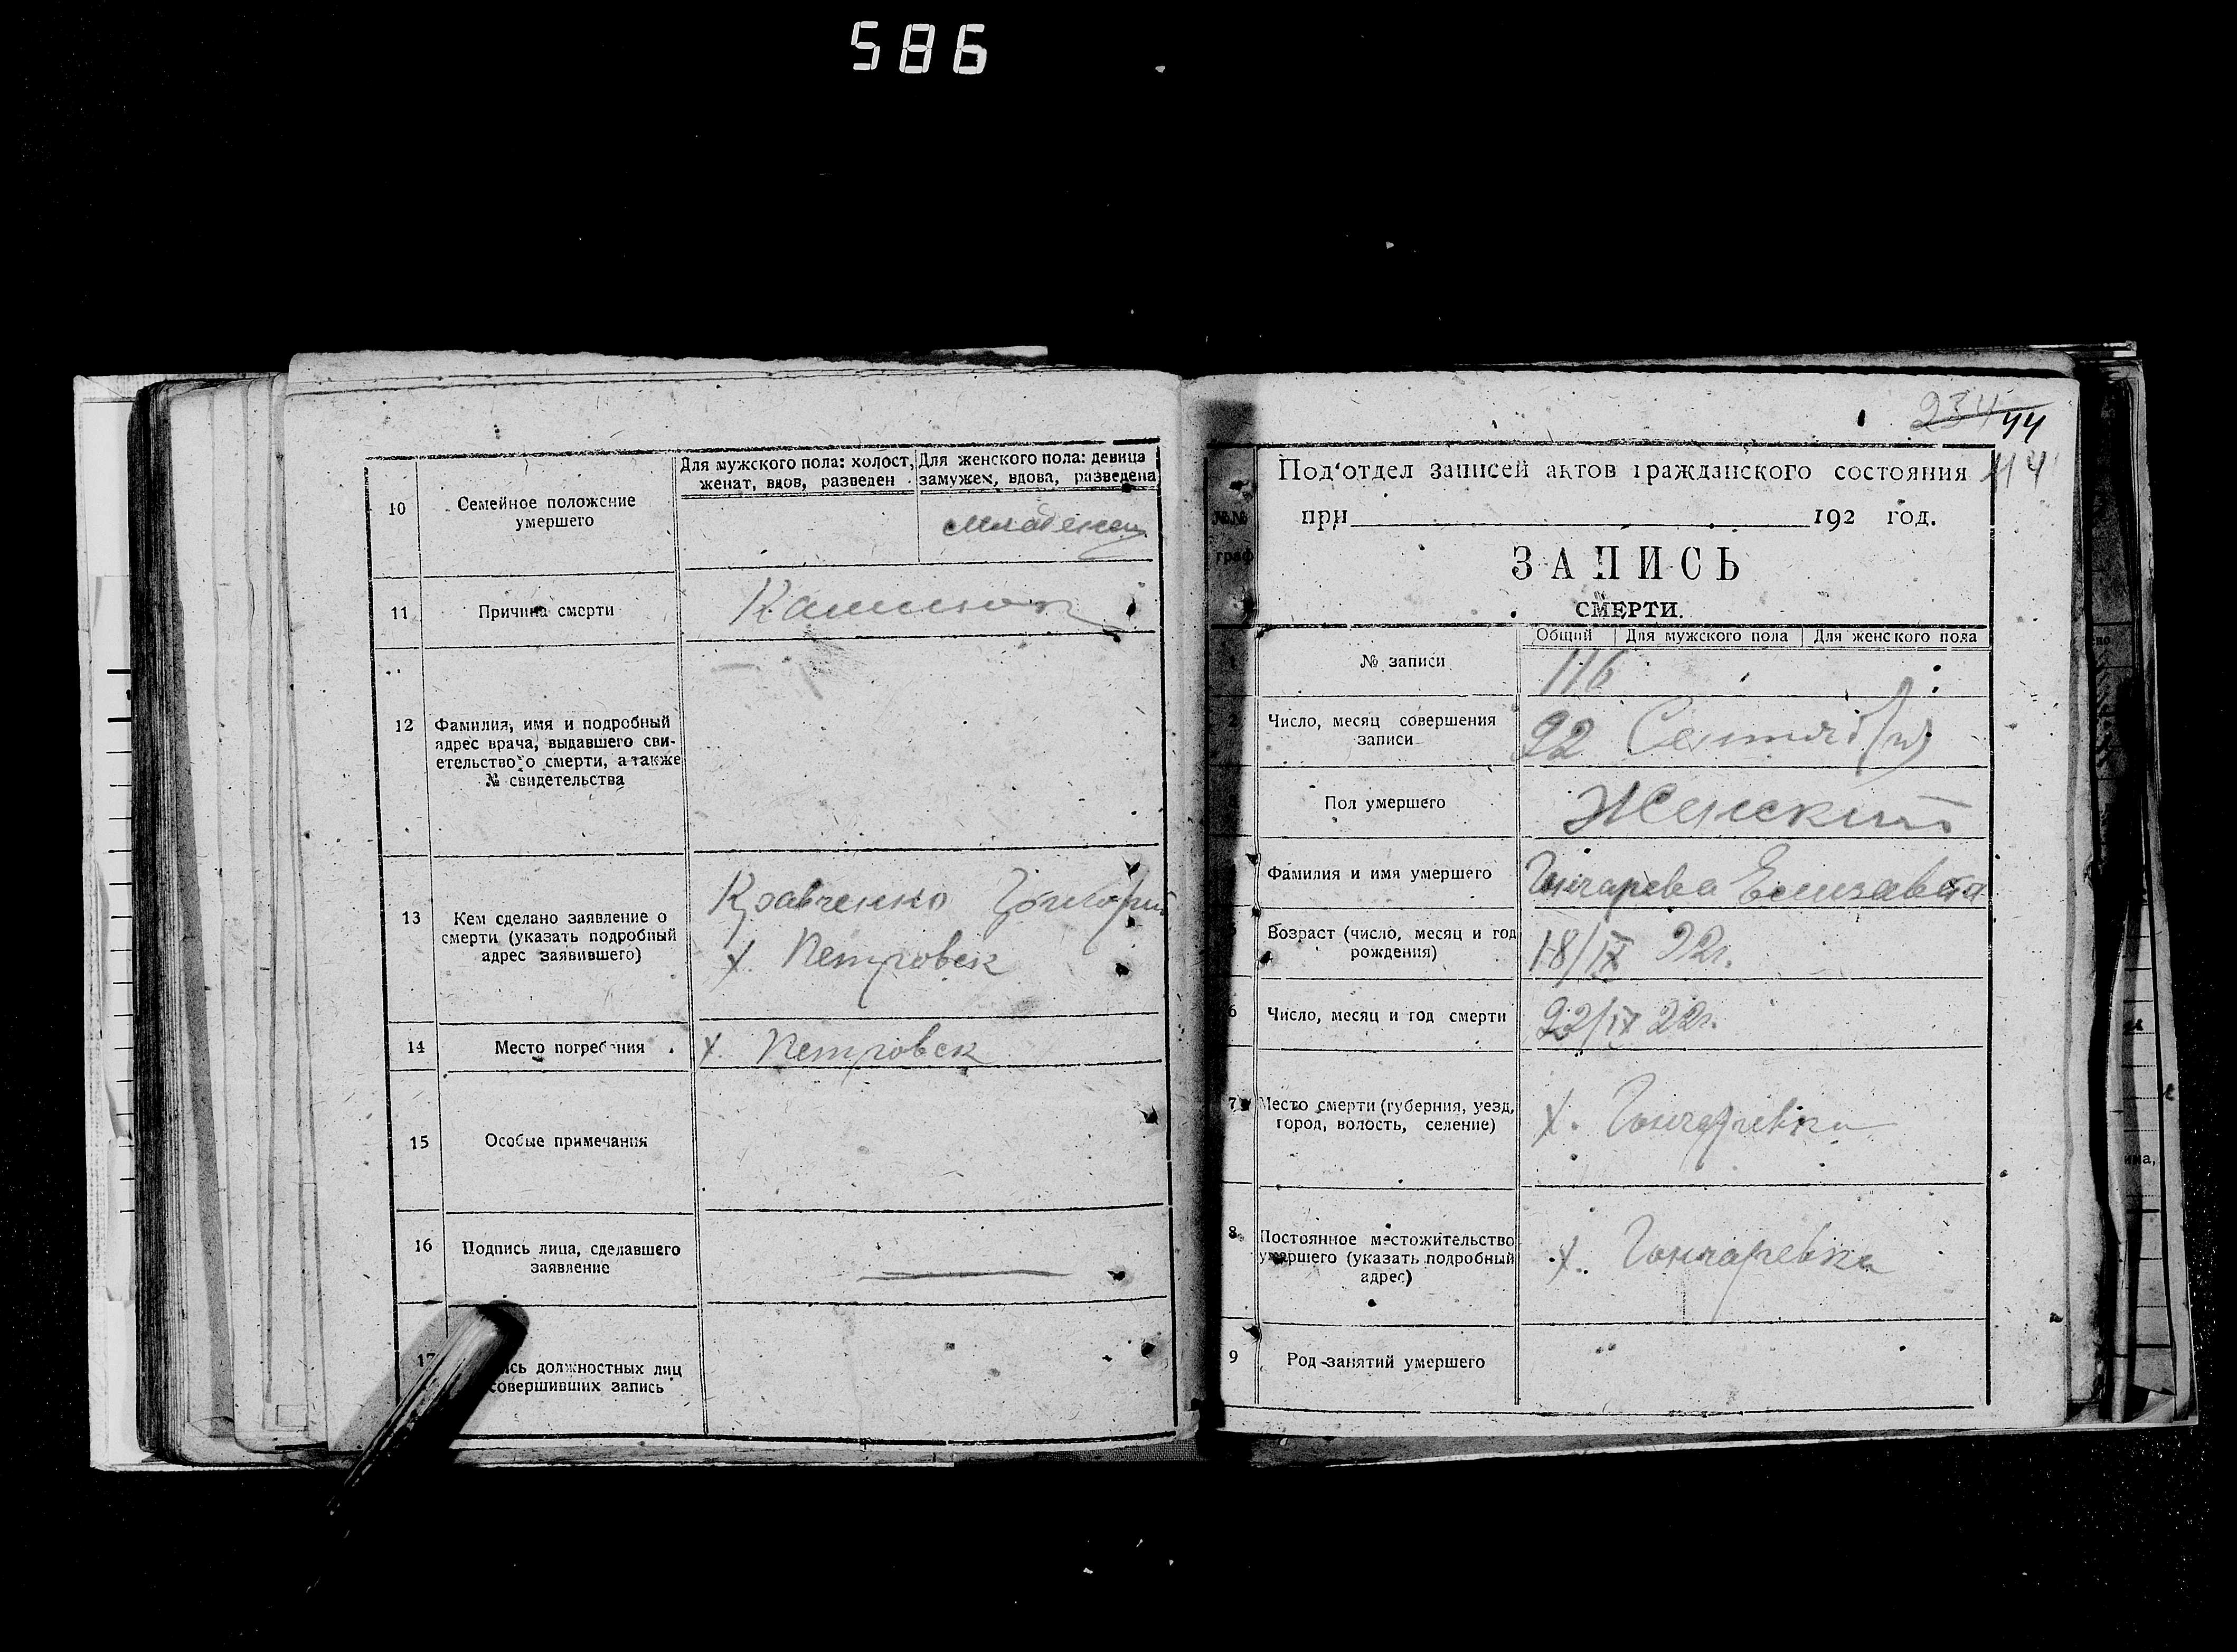 586
10
Семейное положение
умершего
Для мужского пола: холост,
женат, вдов, разведен
Для женского пола: девица
замужем, вдова, разведена
младенец
11
Причина смерти
12
Фамилия, имя и подробный
адрес врача, выдавшего сви-
етельство о смерти, а также
№ свидетельства
13
Кем сделано заявление о
смерти (указать подробный
адрес заявившего)
Кравченко Григорий
х. Петровск
14
Место погребения
х. Петровск
15
Особые примечания
16
Подпись лица, сделавшего
заявление
17
ись должностных лиц
совершивших запись
234
44
114
Под'отдел записей актов гражданского состояния
при 192 год.
№№
граф
ЗАПИСЬ
СМЕРТИ.
Общий
Для мужского пола
Для женского пола
1
№ записи
116
2
Число, месяц совершения
записи
22 Сентября
Пол умершего
Женский
Фамилия и имя умершего
Гончарева Елизавета
Возраст (число, месяц и год
рождения)
18/IX 22г.
6
Число, месяц и год смерти
22/IX 22г.
7
Место смерти (губерния, уезд,
город, волость, селение)
х. Гончаревка
8
Постоянное местожительство
умершего (указать подробный
адрес)
х. Гончаревка
9
Род занятий умершего